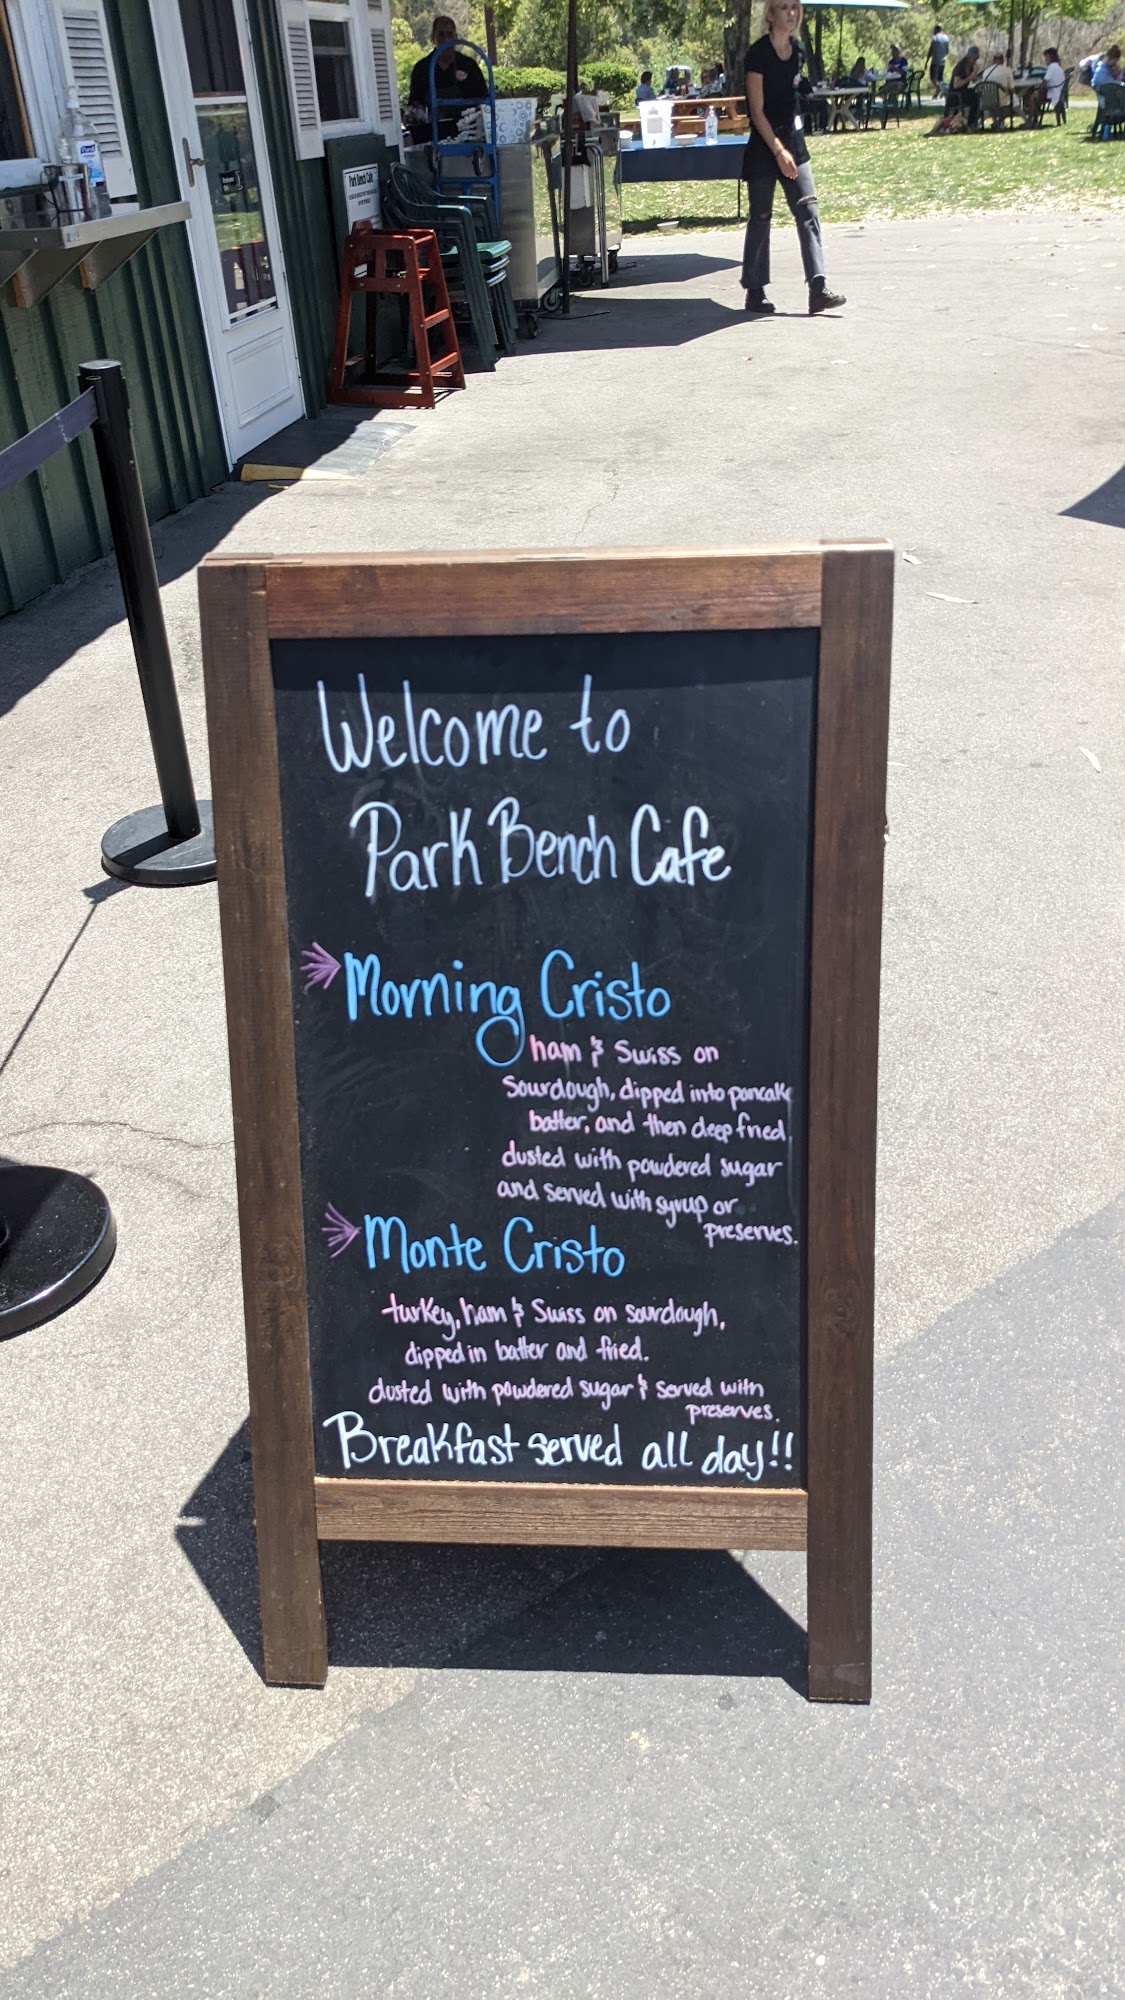 Park Bench Cafe
Welcome to
Park Bench Cafe
Morning Cristo
ham & Swiss on
Sourdough, dipped into pancake
batter, and then deep fried
dusted with powdered sugar
and served with syrup or
preserves.
Monte Cristo
turkey, ham & Swiss on sourdough,
dipped in batter and fried.
dusted with powdered sugar & served with
preserves.
Breakfast served all day!!